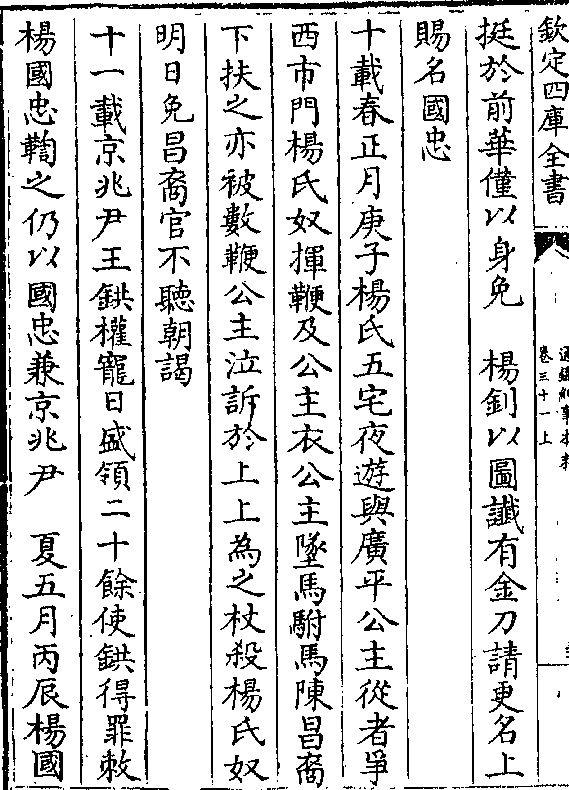 欽定四庫全書
通鑑紀事本末
卷三十一上
挺於前華僅以身免　楊釗以圖讖有金刀請更名上
賜名國忠
十載春正月庚子楊氏五宅夜遊與廣平公主從者爭
西市門楊氏奴揮鞭及公主衣公主墜馬駙馬陳昌裔
下扶之亦被數鞭公主泣訴於上上為之杖殺楊氏奴
明日免昌裔官不聽朝謁
十一載京兆尹王鉷權寵日盛領二十餘使鉷得罪敕
楊國忠鞫之仍以國忠兼京兆尹　夏五月丙辰楊國